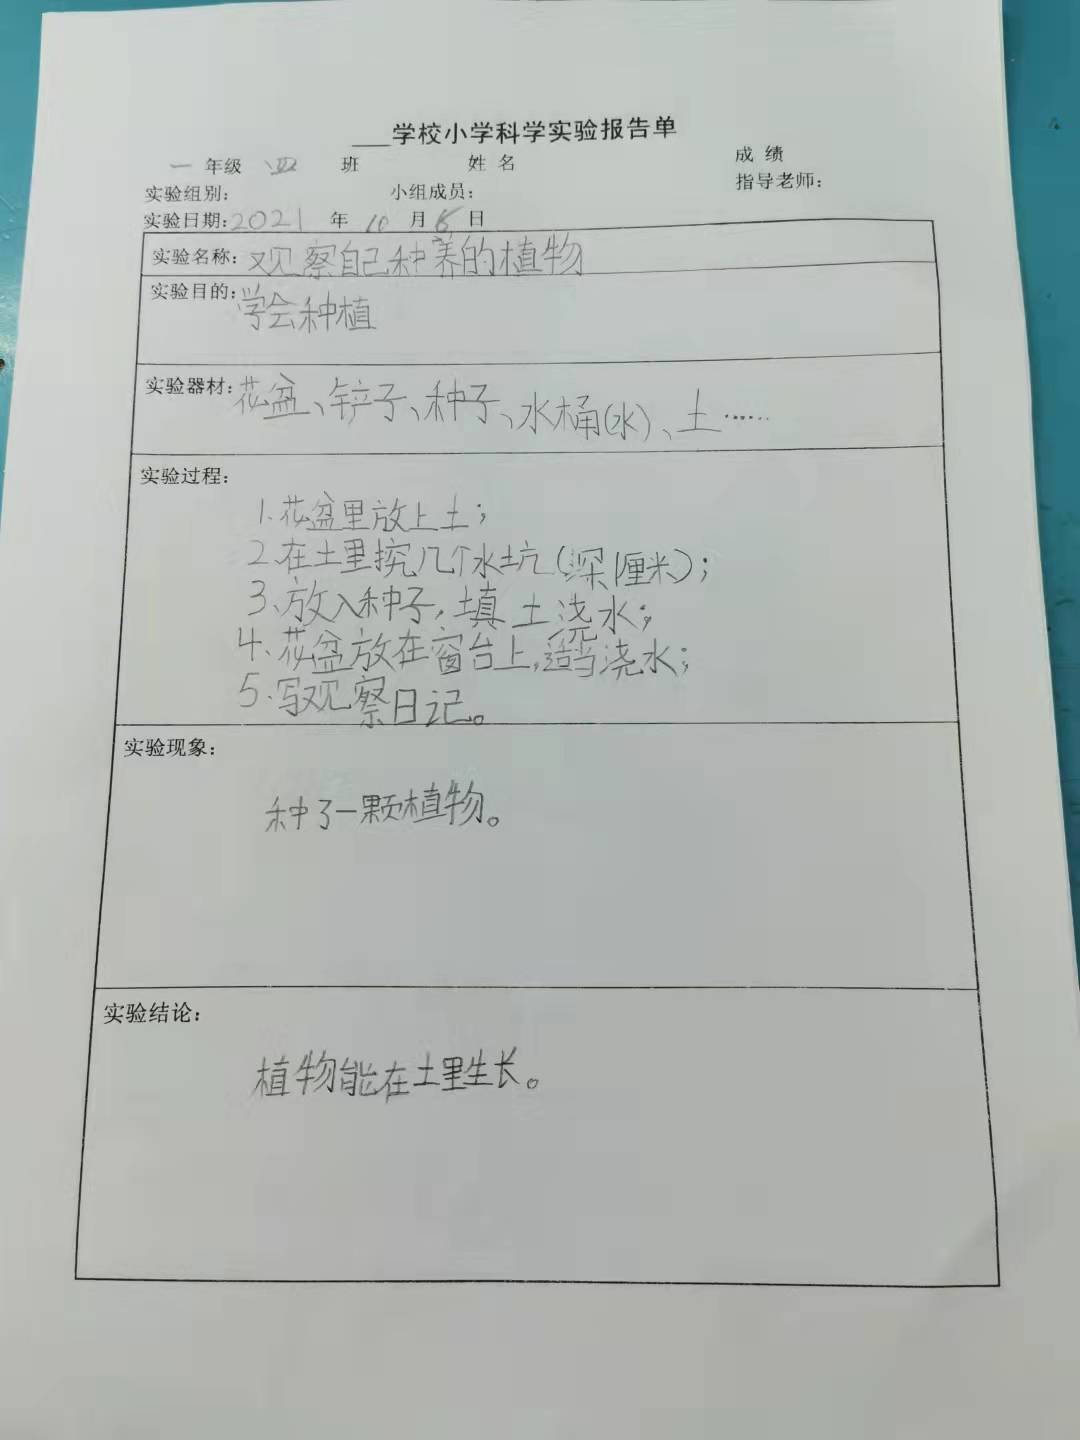 ___学校小学科学实验报告单
一 年级 四 班 姓 名 成 绩
实验组别： 小组成员： 指导老师：
实验日期：2021 年 10 月 15 日
实验名称：观察自己种养的植物
实验目的：学会种植
实验器材：花盆、铲子、种子、水桶(水)、土……
实验过程：
1.花盆里放上土；
2.在土里挖几个水坑(深1厘米)；
3.放入种子，填土浇水；
4.花盆放在窗台上，适当浇水；
5.写观察日记。
实验现象：
种了一颗植物。
实验结论：
植物能在土里生长。